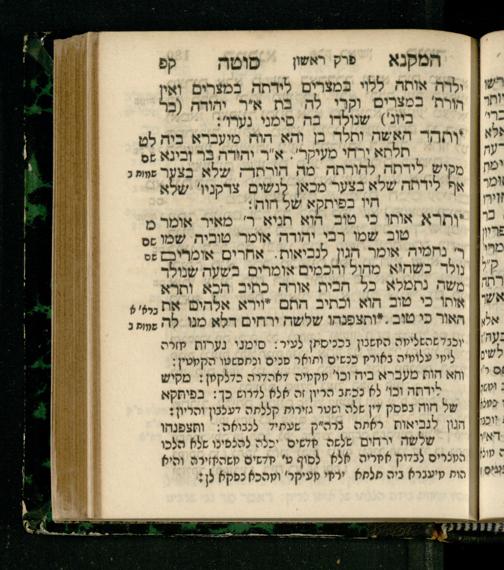 המקנא פרק ראשון סוטה קפ
ילדה אותה ללוי במצרים לידתה במצרים ואין
הורת' במצרים וקרי לה בת א״ר יהודה (בר
ביזנ') שנולדו בה סימני נערו':
*ותהר האשה ותלד בן והא הוה מיעברא ביה לט
תלתא ירחי מעיקר'. א״ר יהודה בר זבינא שם
מקיש לידתה להורתה מה הורתה שלא בצער שמות ב
אף לידתה שלא בצער מכאן לנשים צדקניו' שלא
היו בפיתקא של חוה:
*ותרא אותו כי טוב הוא תניא ר' מאיר אומר מ
טוב שמו רבי יהודה אומר טוביה שמו שם
ר' נחמיה אומר הגון לנביאות. אחרים אומרים שם
נולד כשהוא מהול והכמים אומרים בשעה שנולד
משה נתמלא כל הבית אורה כתיב הכא ותרא
אותו כי טוב הוא וכתיב התם *וירא אלהים את ברא' א
האור כי טוב. *ותצפנהו שלשה ירחים דלא מנו לה שמות ב
יוכבד השלימה החשבון בכניסתן לעיר: סימני נערות חזרה
לימי עלומיה בשרה כנשים ותואר פנים ונתפשטו הקמטין:
והא הות מעברא ביה וכו' מקמיה דאהדרה כדלקמן: מקיש
לידתה וכו' לא נכתב הריון זה אלא לדרוש כך: בפיתקא
של חוה בפסק דין שלה ושטר גזירות קללתה דעלבון והריון:
הגון לנביאות ראתה ברה״ק שעתיד לנבואה: ותצפנהו
שלשה ירחים שלשה חדשים יכלה להצפינו שלא הלכו
המצרים לבדוק אחריה אלא לסוף ט' חדשים משהחזירה והיא
הות מיעברא ביה תלתא ירחי מעיקר' ומהכא נפקא לן: